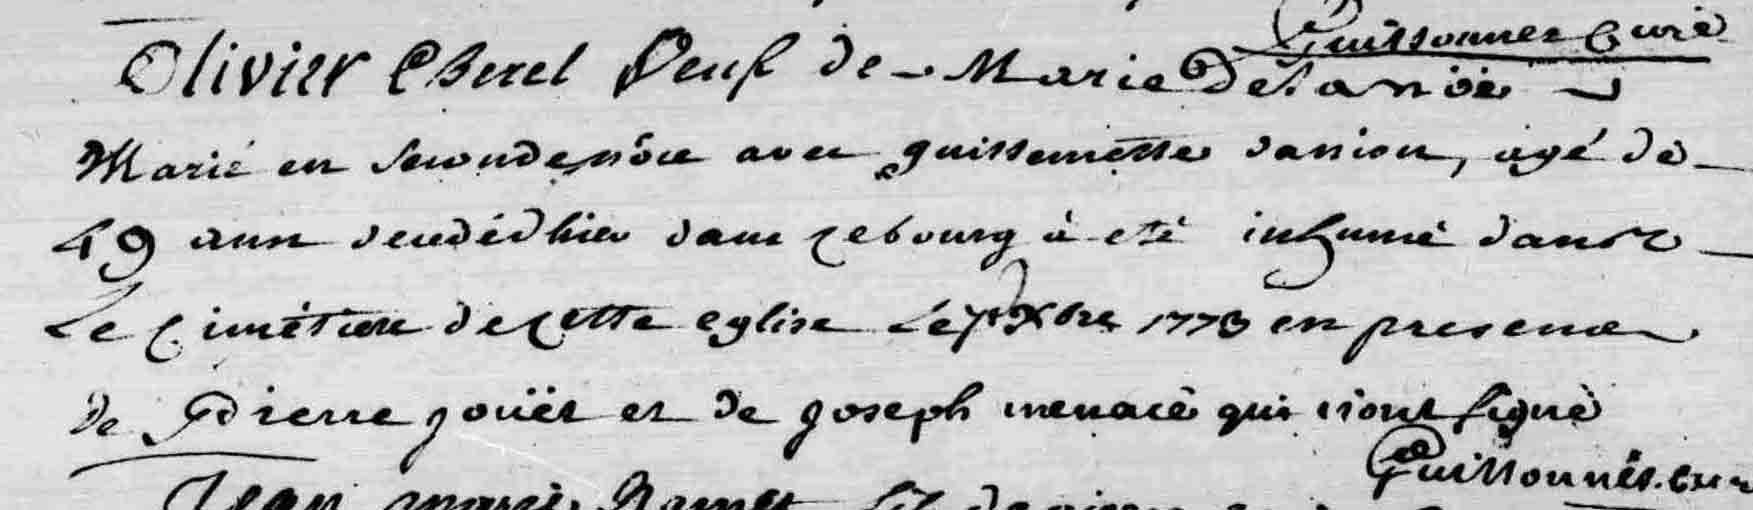 Guissonnee Curé
Olivier Cherel Veuf de Marie Delanöe
Marié en seconde nôce avec guillemette Danion, agé de
49 ans decedé hier dans ce bourg à eté inhumé dans
Le Cimétiere de cette eglise Le 7e Xbre 1773 en presence
de Pierre joüet et de joseph menacé qui n'ont signé
Jean fils de